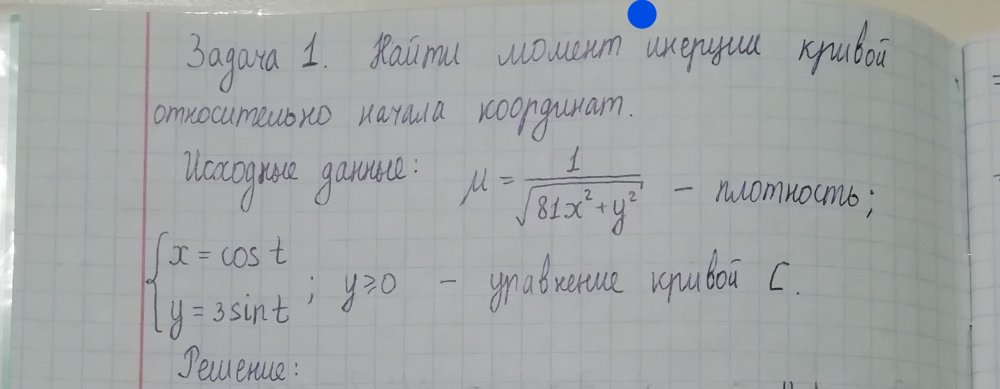 Задача 1. Найти момент инерции кривой
относительно начала координат.
Исходные данные: μ = 1/√(81x² + y²) – плотность;
{ x = cos t
y = 3 sin t ; y ≥ 0 – уравнение кривой C.
Решение: